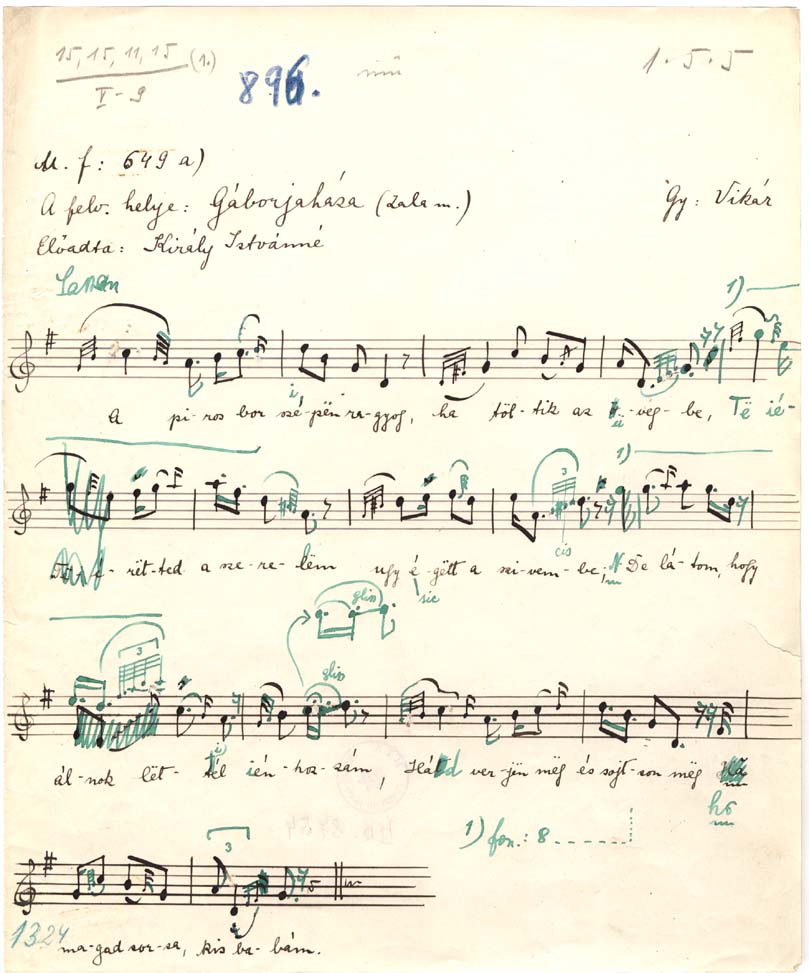 15, 15, 11, 15 (1.)
V-9
896.
1·5·5
M. f: 649 a)
A felv. helye: Gáborjaháza (Zala m.)
Gy: Vikár
Előadta: Király Istvánné
1)
A pi-ros bor szé-pën ra-gyog, ha töl-tik az ü-veg-be, Të ié-
3
1)
cis
rët-ted a sze-re-lëm ugy é-gëtt a szi-vem-be; De lá-tom, hogy
sic
gliss
3
gliss
ál-nok lët-tél ién-hoz-zám, Hát verjën mëg és sojt-son mëg
ho
1) fon.: 8
3
1324
ma-gad sor-sa, kis ba-bám.